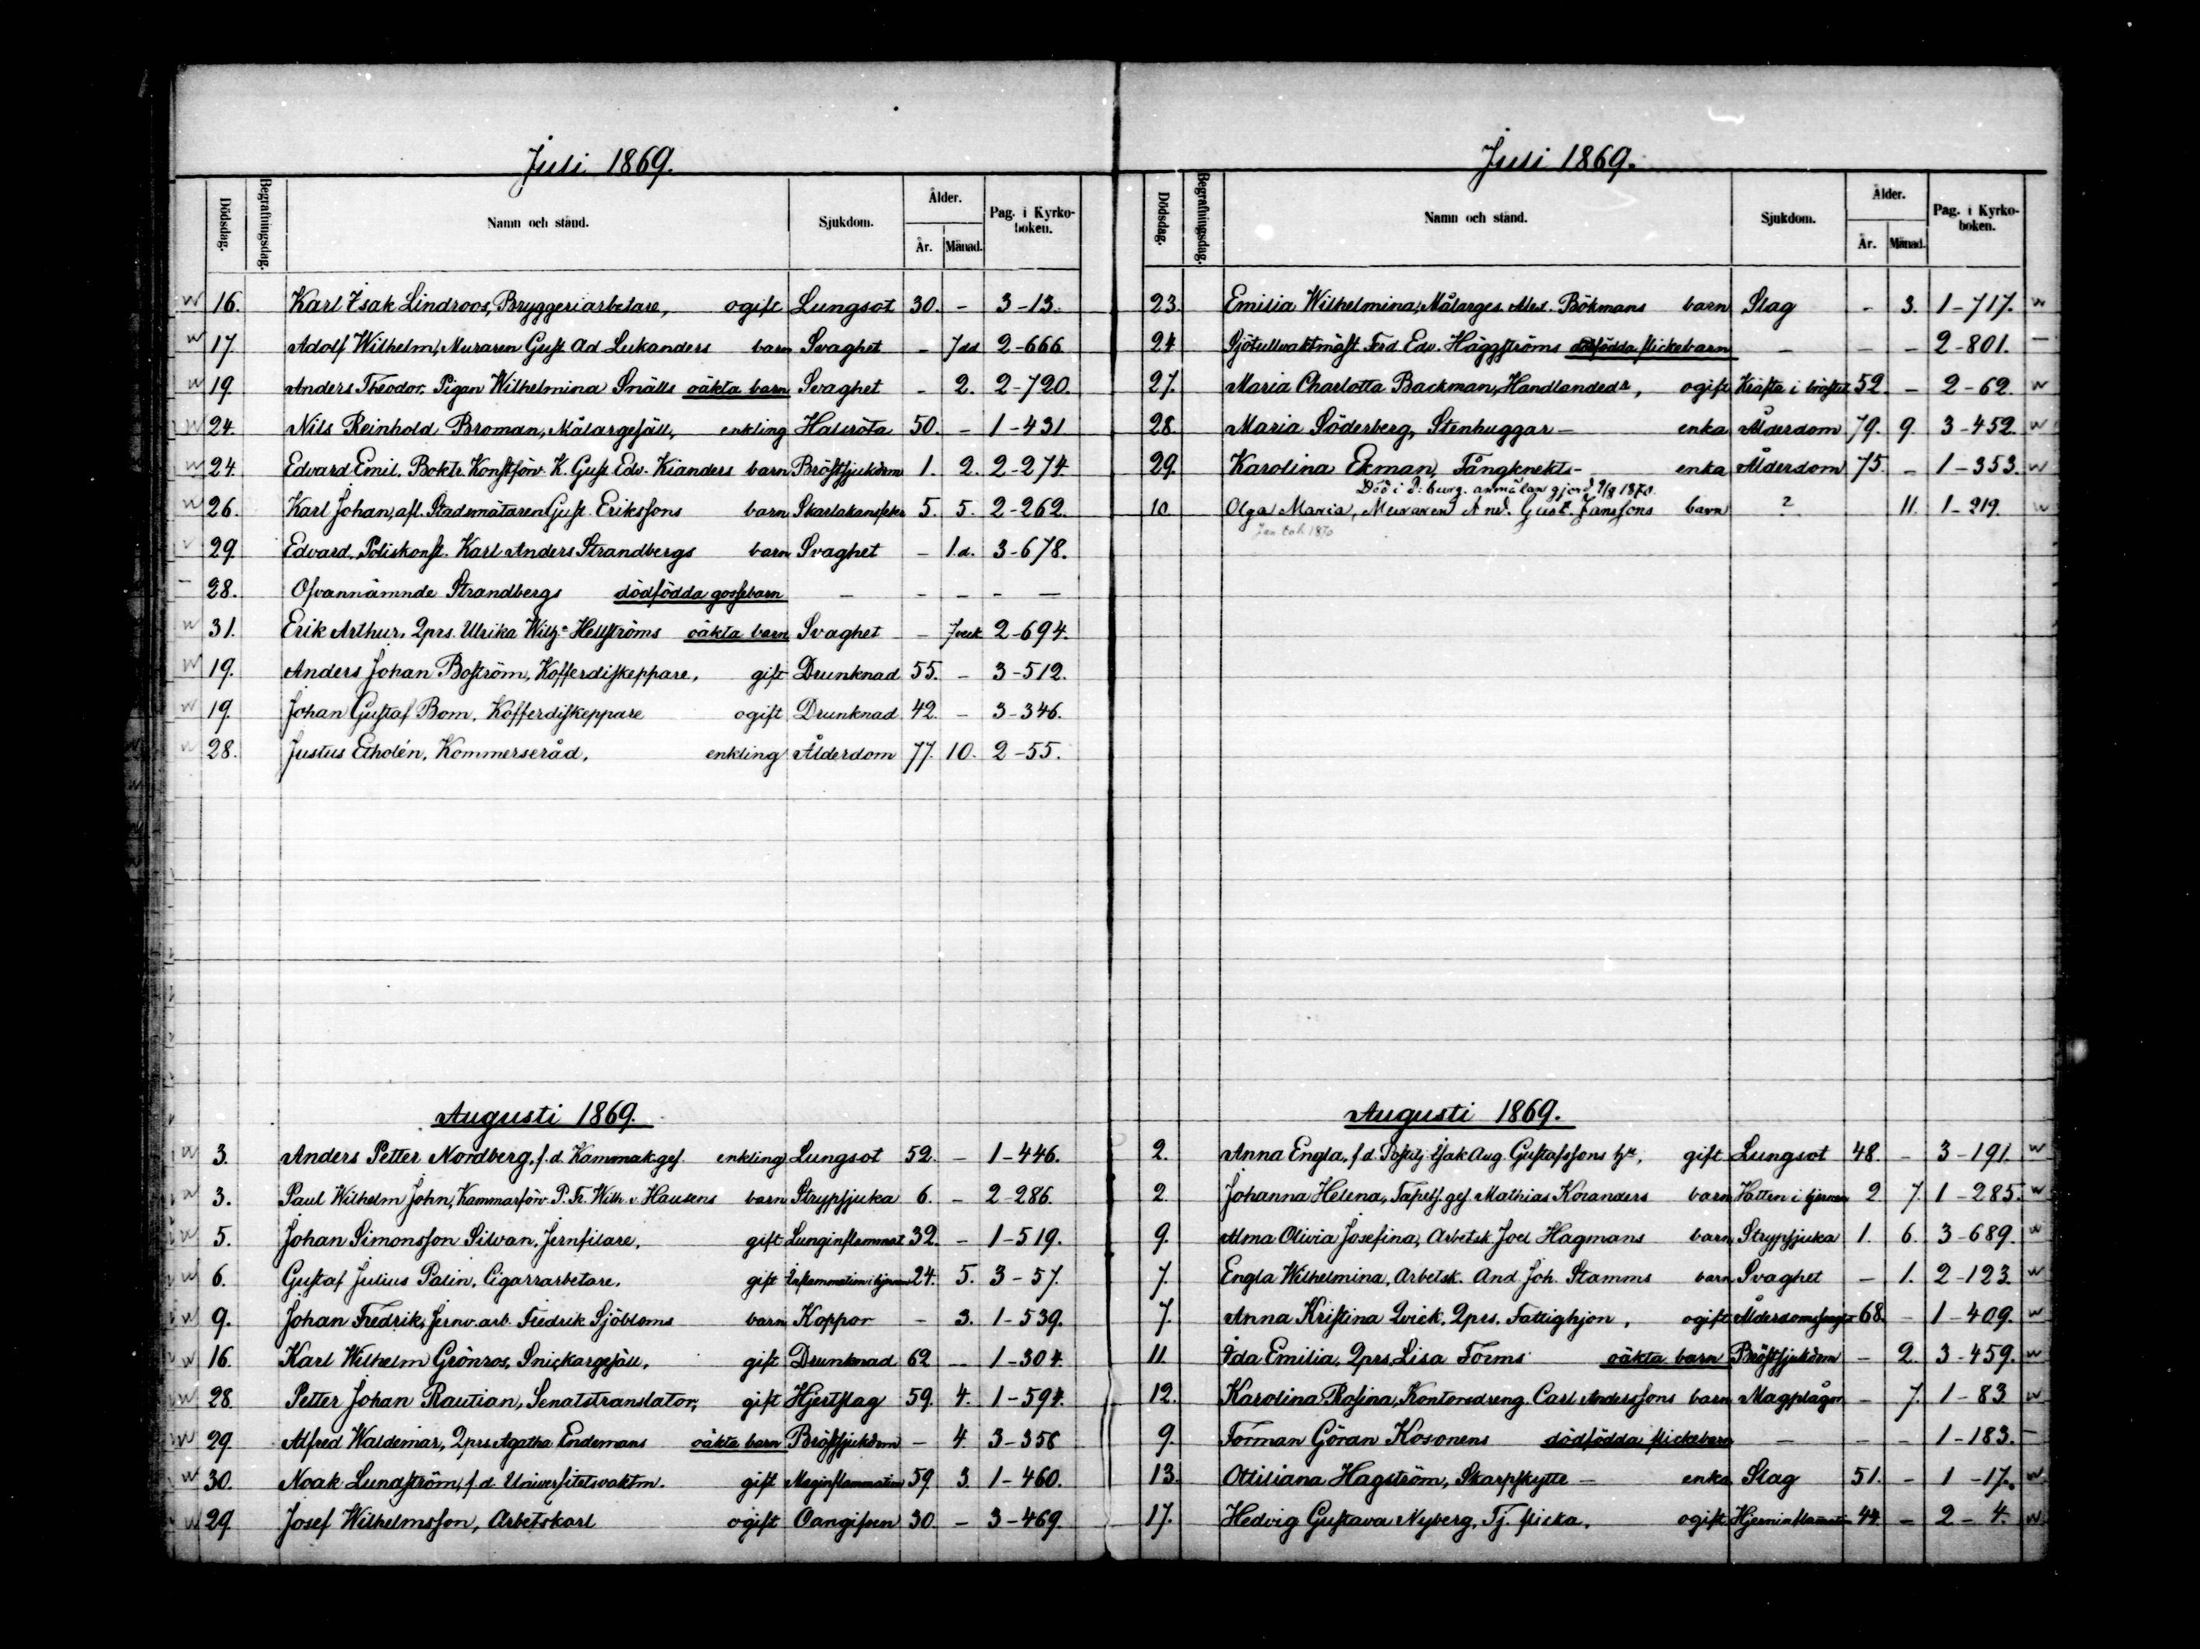 Juli 1869.
Dödsdag. Begrafningsdag. Namn och stånd. Sjukdom. Ålder. År. Månad. Pag. i Kyrko-boken.
16. Karl Isak Lindroos, Bryggeriarbetare, ogift Lungsot 30. - 3-13.
17. Adolf Wilhelm, Muraren Gust. Ad. Lukanders barn Svaghet - 7dd 2-666.
19. Anders Theodor, Pigan Wilhelmina Smälls oäkta barn Svaghet - 2. 2-720.
24. Nils Reinhold Broman, Målargesäll, enkling Halsröta 50. - 1-431
24. Edvard Emil, Boktr. Konstförv. K. Gust. Edv. Kianders barn Bröstsjukdom 1. 2. 2-274.
26. Karl Johan, afl. Stadsmätaren Gust. Erikssons barn Skarlakansfeber 5. 5. 2-262.
29. Edvard, Poliskonst. Karl Anders Strandbergs barn Svaghet - 1.d. 3-678.
28. Ofvannämnde Strandbergs dödfödda gossebarn - - - - -
31. Erik Arthur, Qprs. Ulrika Wilh:a Hellströms oäkta barn Svaghet - 7veck 2-694.
19. Anders Johan Boström, Kofferdiskeppare, gift Drunknad 55. - 3-512.
19. Johan Gustaf Bom, Kofferdiskeppare ogift Drunknad 42. - 3-346.
28. Justus Etholén, Kommerseråd, enkling Ålderdom 77. 10. 2-55.
Augusti 1869.
3. Anders Petter Nordberg, f.d. Kammak.ges. enkling Lungsot 52. - 1-446.
3. Paul Wilhelm John, Kammarförv. P. Fr. Wilh. v. Hausens barn Strypsjuka 6. - 2-286.
5. Johan Simonsson Silvan, Jernfilare, gift Lunginflammat 32. - 1-519.
6. Gustaf Julius Palin, Cigarrarbetare, gift Inflammation i hjernan 24. 5. 3-57.
9. Johan Fredrik, Jernv.arb. Fredrik Sjöbloms barn Koppor - 3. 1-539.
16. Karl Wilhelm Grönros, Snickargesäll, gift Drunknad 62 - 1-304.
28. Petter Johan Rautian, Senatstranslator, gift Hjertslag 59. 4. 1-594.
29. Alfred Waldemar, Qprs. Agatha Endemans oäkta barn Bröstsjukdom - 4. 3-358
30. Noak Lundström, f.d. Universitetsvaktm. gift Maginflammation 59. 3. 1-460.
29. Josef Wilhelmsson, Arbetskarl ogift Oangifven 30. - 3-469.
Juli 1869.
Dödsdag. Begrafningsdag. Namn och stånd. Sjukdom. Ålder. År. Månad. Pag. i Kyrko-boken.
23. Emilia Wilhelmina, Målarges. Alex. Bökmans barn Slag - 3. 1-717.
24. Sjötullvaktmäst. Ferd. Edv. Häggströms dödfödda flickebarn - - - 2-801.
27. Maria Charlotta Backman, Handlandedr, ogift Kräfta i bröstet 52. - 2-62.
28. Maria Söderberg, Stenhuggar- enka Ålderdom 79. 9. 3-452.
29. Karolina Ekman, Fångknekts- enka Ålderdom 75. - 1-353.
Död i P:burg. anmälan gjord 9/8 1870.
10 Olga Maria, Muraren And. Gust. Janssons barn ? 11. 1-219.
Augusti 1869.
2. Anna Engla, f.d. Postilj. Isak Aug. Gustafssons h:u, gift Lungsot 48. - 3-191.
2. Johanna Helena, Tapets.ges. Mathias Koranders barn Vatten i hjernan 2. 7. 1-285.
9. Alma Olivia Josefina, Arbetsk. Joel Hagmans barn Strypsjuka 1. 6. 3-689.
7. Engla Wilhelmina, Arbetsk. And. Joh. Stamms barn Svaghet - 1. 2-123.
7. Anna Kristina Qvick, Qprs. Fattighjon, ogift Ålderdomssvaghet 68. - 1-409.
11. Ida Emilia, Qprs. Lisa Forms oäkta barn Bröstsjukdom - 2. 3-459.
12. Karolina Rosina, Kontorsdreng Carl Anderssons barn Magplågor - 7. 1-83
9. Forman Göran Kosonens dödfödda flickebarn - - - 1-183.
13. Ottiliana Hagström, Skarpskytte- enka Slag 51. - 1-17.
17. Hedvig Gustava Nyberg, Tj. flicka, ogift Hjerninflammation 44. - 2-4.